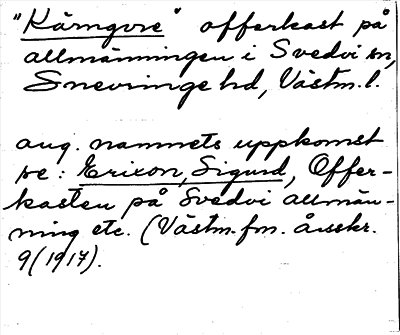 "Kärngvre" offerkast på
allmänningen i Svedvi sn,
Snevringe hd, Västm.l.
ang. namnets uppkomst
se: Erixon, Sigurd, Offer-
kasten på Svedvi allmän-
ning etc. (Västm.fm. årsskr.
9(1917).